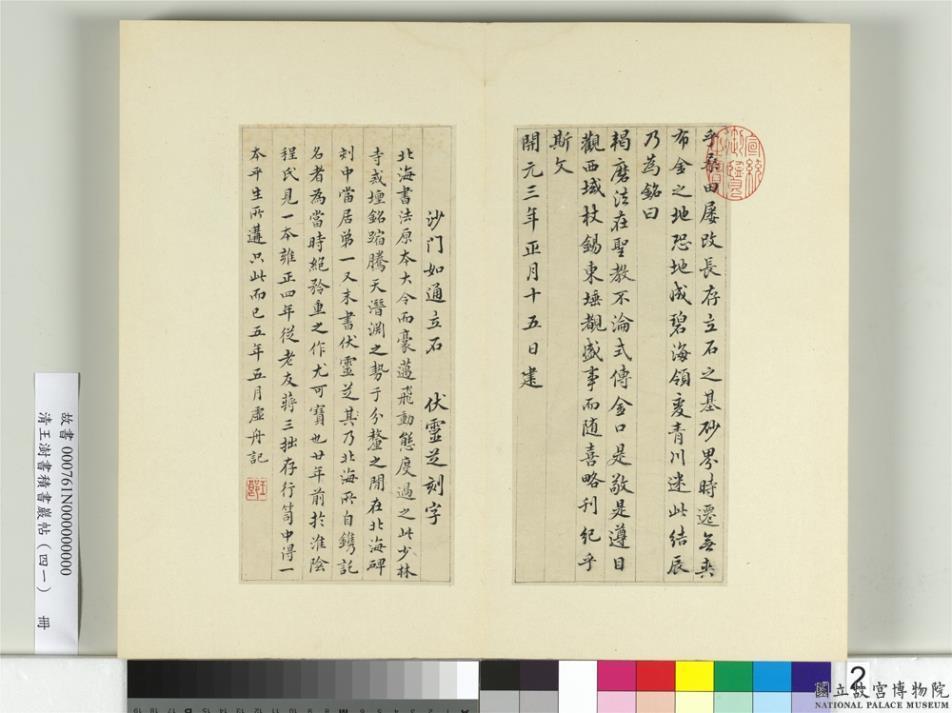 乎桑田屢改長存立石之基砂界時遷無爽
布金之地恐地成碧海領變青川迷此結辰
乃為銘曰
羯磨法在聖教不淪式傳金口是敬是遵目
觀西域杖錫東埵覩盛事而隨喜略刊紀乎
斯文
開元三年正月十五日建
沙门如通立石 伏靈芝刻字
北海書法原本大令而豪蕩飛動態度過之此少林
寺戒壇銘蹜騰天潛淵之勢于分釐之閒在北海碑
刻中當居第一又末書伏靈芝其乃北海所自鐫託
名者為當時絕矜重之作尤可寶也廿年前於淮陰
程氏見一本雍正四年從老友蔣三拙存行笥中得一
本平生所遘只此而已五年五月虛舟記
宣統御覽之寶
故書 000761N000000000
清王澍書積書巖帖(四一) 冊
2
國立故宮博物院
NATIONAL PALACE MUSEUM